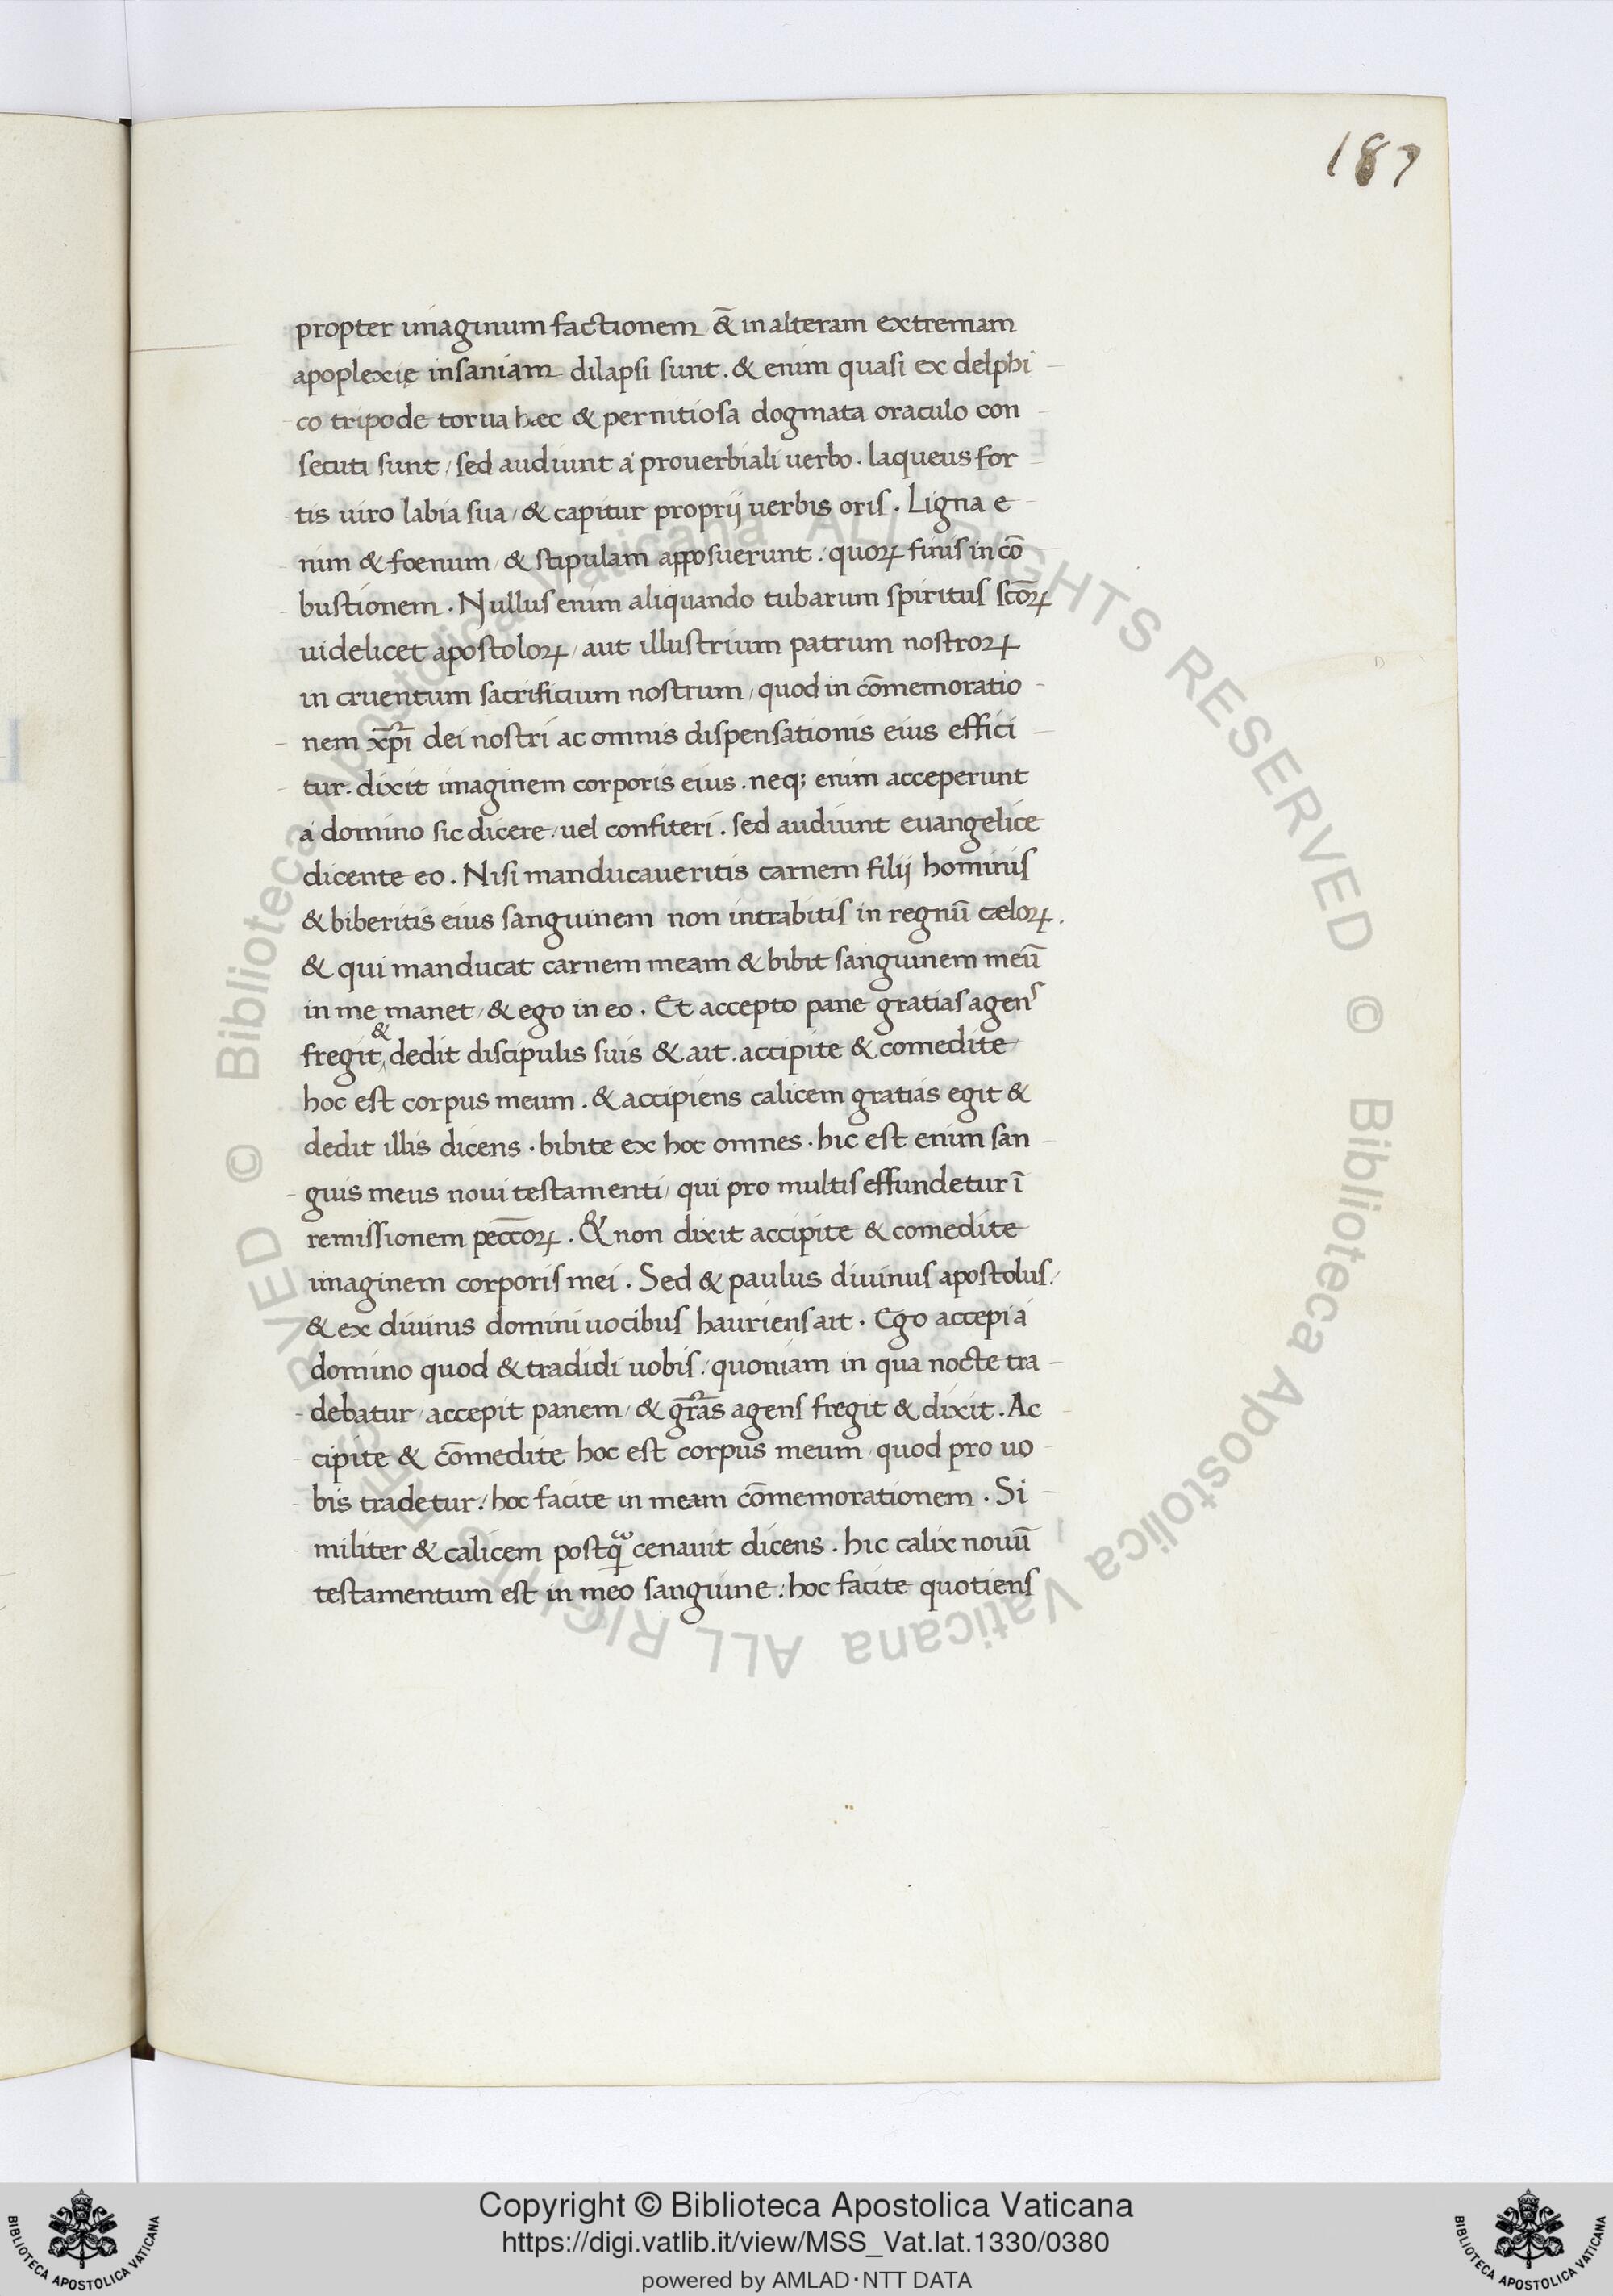 187
propter imaginum factionem &̃ in alteram extremam
apoplexię insaniam dilapsi sunt. & enim quasi ex delphi
co tripode torua hæc & pernitiosa dogmata oraculo con
secuti sunt / sed audiunt a prouerbiali uerbo. laqueus for
tis uiro labia sua / & capitur proprij uerbis oris. Ligna e
nim & foenum / & stipulam apposuerunt / quoꝝ finis in cō
bustionem. Nullus enim aliquando tubarum spiritus sc̄oꝝ
uidelicet apostoloꝝ / aut illustrium patrum nostroꝝ
in cruentum sacrificium nostrum / quod in cōmemoratio
nem xp̄i dei nostri ac omnis dispensationis eius effici
tur. dixit imaginem corporis eius. neq; enim acceperunt
a domino sic dicere / uel confiteri. sed audiunt euangelice
dicente eo. Nisi manducaueritis carnem filij hominis
& biberitis eius sanguinem non intrabitis in regnū cæloꝝ.
& qui manducat carnem meam & bibit sanguinem meū
in me manet / & ego in eo. Et accepto pane gratias agens
fregit & dedit discipulis suis & ait. accipite & comedite
hoc est corpus meum. & accipiens calicem gratias egit &
dedit illis dicens. bibite ex hoc omnes. hic est enim san
guis meus noui testamenti / qui pro multis effundetur ī
remissionem pecc̄oꝝ. & non dixit accipite & comedite
imaginem corporis mei. Sed & paulus diuinus apostolus /
& ex diuinis domini uocibus hauriens ait. Ego accepi a
domino quod & tradidi uobis / quoniam in qua nocte tra
debatur / accepit panem / & gr̄as agens fregit & dixit. Ac
cipite & cōmedite hoc est corpus meum / quod pro uo
bis tradetur / hoc facite in meam cōmemorationem. Si
militer & calicem postq̄ cenauit dicens. hic calix nouū
testamentum est in meo sanguine : hoc facite quotiens
© Biblioteca Apostolica Vaticana ALL RIGHTS RESERVED © Biblioteca Apostolica Vaticana ALL RIGHTS RESERVED
Copyright © Biblioteca Apostolica Vaticana
https://digi.vatlib.it/view/MSS_Vat.lat.1330/0380
powered by AMLAD·NTT DATA
BIBLIOTECA APOSTOLICA VATICANA
BIBLIOTECA APOSTOLICA VATICANA